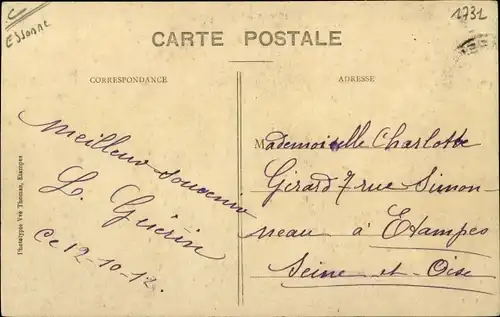 Essonne
1731
CARTE POSTALE
CORRESPONDANCE
ADRESSE
Meilleur souvenir
L. Guérin
Ce 12-10-12.
Mademoiselle Charlotte
Girard 7 rue Simon-
neau à Etampes
Seine-et-Oise
Phototypie Vve Thomas, Etampes